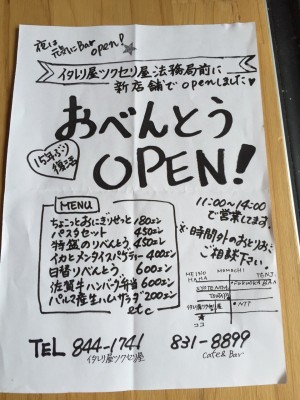 夜は
元気にBar
open!
イタレリ屋ツクセリ屋法務局前に
新店舗でopenしました♥
おべんとう
OPEN!
15年ぶり
復活
MENU
ちょこっとおにぎりせっと 180エン
パスタセット 450エン
特盛のりべんとう 450エン
イカとメンタイスパゲティー 400エン
日替りべんとう 600エン
佐賀牛ハンバーグ弁当 600エン
パルマ産生ハムサラダ 200エン
etc
11:00~14:00
で営業してます!
※時間外のおとりおき
ご相談下さい
MEINO
HAMA
MOMOCHI
TENJ
FUKUOKA BAN
イタレリ屋ツクセリ屋
NTT
★
ココ
TEL 844-1741
イタレリ屋ツクセリ屋
831-8899
Cafe & Bar